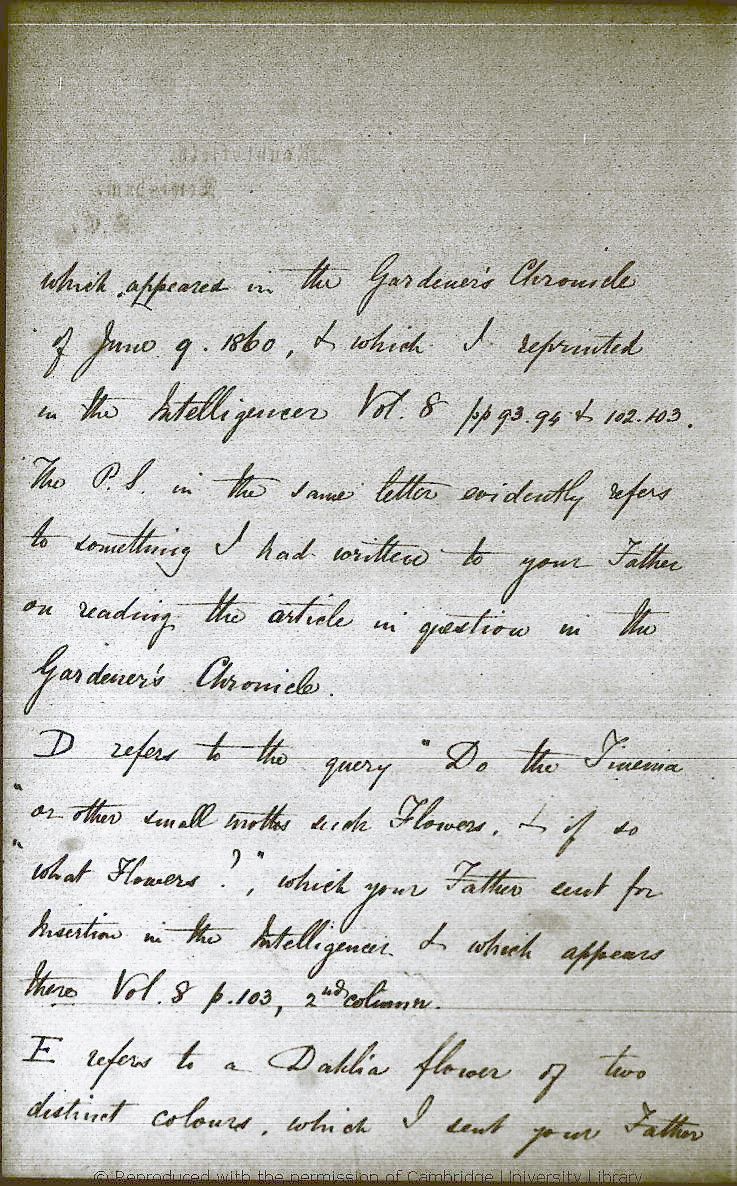 which appeared in the Gardener's Chronicle
of June 9. 1860, & which I reprinted
in the Intelligencer Vol. 8 pp 93. 94 & 102. 103.
The P.S. in the same letter evidently refers
to something I had written to your Father
on reading the article in question in the
Gardener's Chronicle.
D refers to the query "Do the Tineina
"or other small moths suck Flowers, & if so
"what Flowers?", which your Father sent for
Insertion in the Intelligencer & which appears
there Vol. 8 p. 103, 2nd column.
E refers to a Dahlia flower of two
distinct colours, which I sent your Father
© Reproduced with the permission of Cambridge University Library